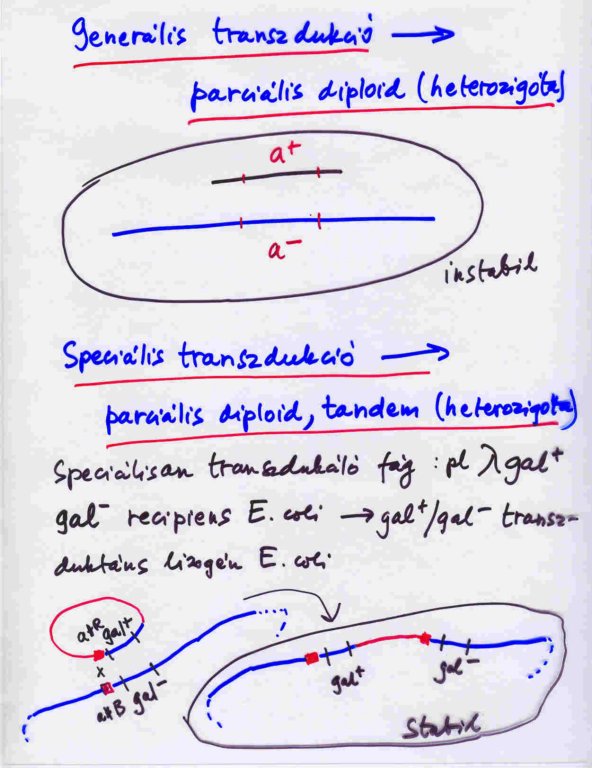 Generális transzdukció →
parciális diploid (heterozigóta)
a+
a-
instabil
Speciális transzdukció →
parciális diploid, tandem (heterozigóta)
Speciálisan transzdukáló fág : pl λgal+
gal- recipiens E. coli → gal+/gal- transz-
duktáns lizogén E. coli
attR gal+
x
attB gal-
gal+
gal-
Stabil